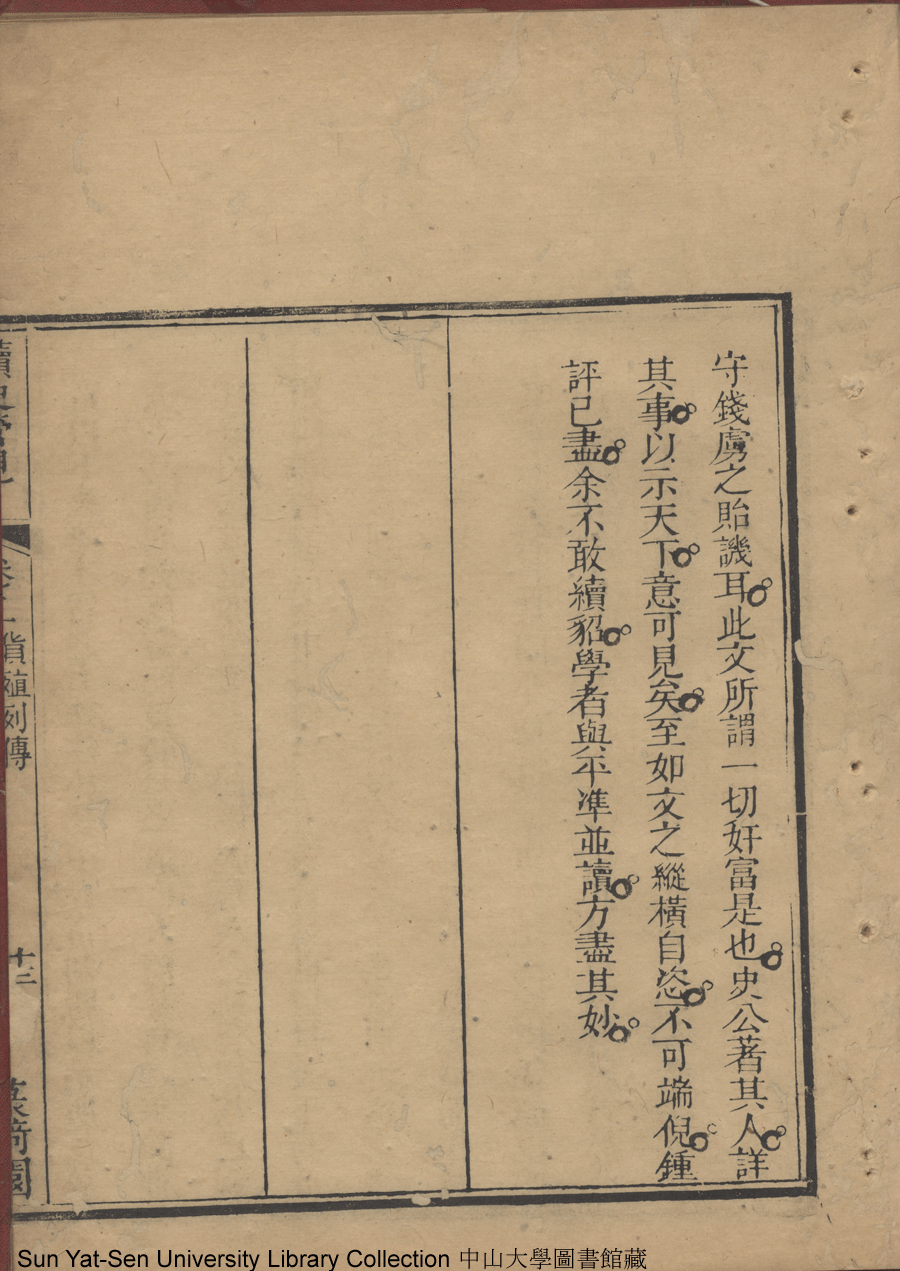 守錢虜之貽譏耳此文所謂一切奸富是也史公著其人詳
其事以示天下意可見矣至如文之縱橫自恣不可端倪鍾
評已盡余不敢續貂學者與平準並讀方盡其妙
讀史管見
卷 貨殖列傳
十二
園
Sun Yat-Sen University Library Collection 中山大學圖書館藏